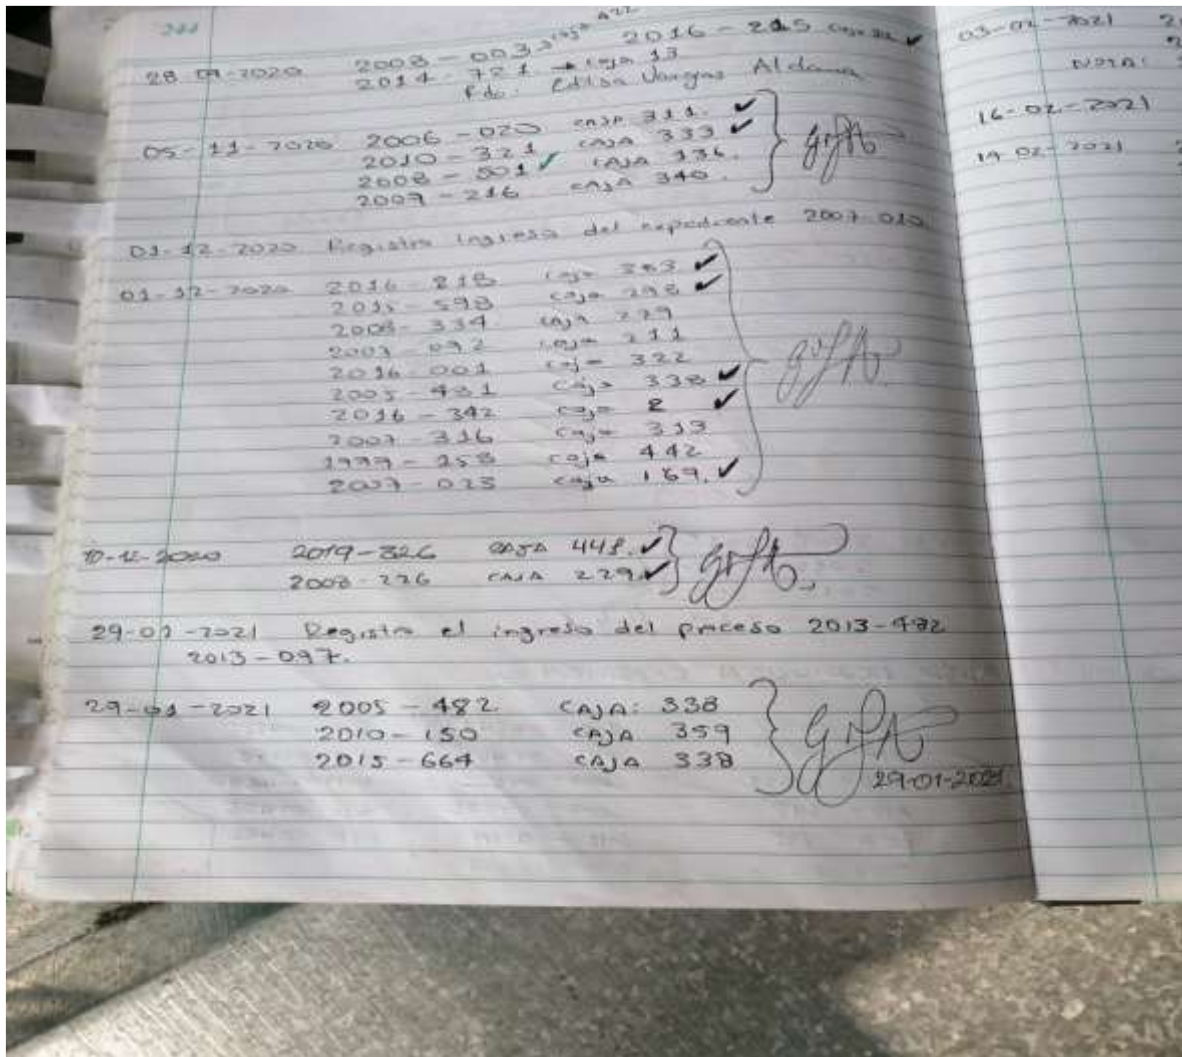 244
28 09-2020 2008-003 → caja 422 2016-215
2014-721 → caja 13
Pdo: Edilsa Vargas Aldana
05-11-2020 2006-020 CAJA 311. ✓
2010-321 CAJA 333 ✓
2008-501 ✓ CAJA 136.
2007-216 CAJA 340.
01-12-2020 Registro ingreso del expediente 2007-010
01-12-2020 2016-218 caja 353 ✓
2015-598 caja 298 ✓
2008-334 caja 229
2007-092 caja 211
2016-001 caja 322
2005-481 caja 338 ✓
2016-342 caja 2 ✓
2007-316 caja 313
1999-258 caja 442
2007-023 caja 169. ✓
10-12-2020 2019-326 CAJA 448. ✓
2008-226 CAJA 229 ✓
29-01-2021 Registro el ingreso del proceso 2013-492
2013-097.
29-01-2021 2005-482 CAJA: 338
2010-150 CAJA 359
2015-664 CAJA 338
29-01-2021
03-02-2021
NOTA:
16-02-2021
19 02-2021